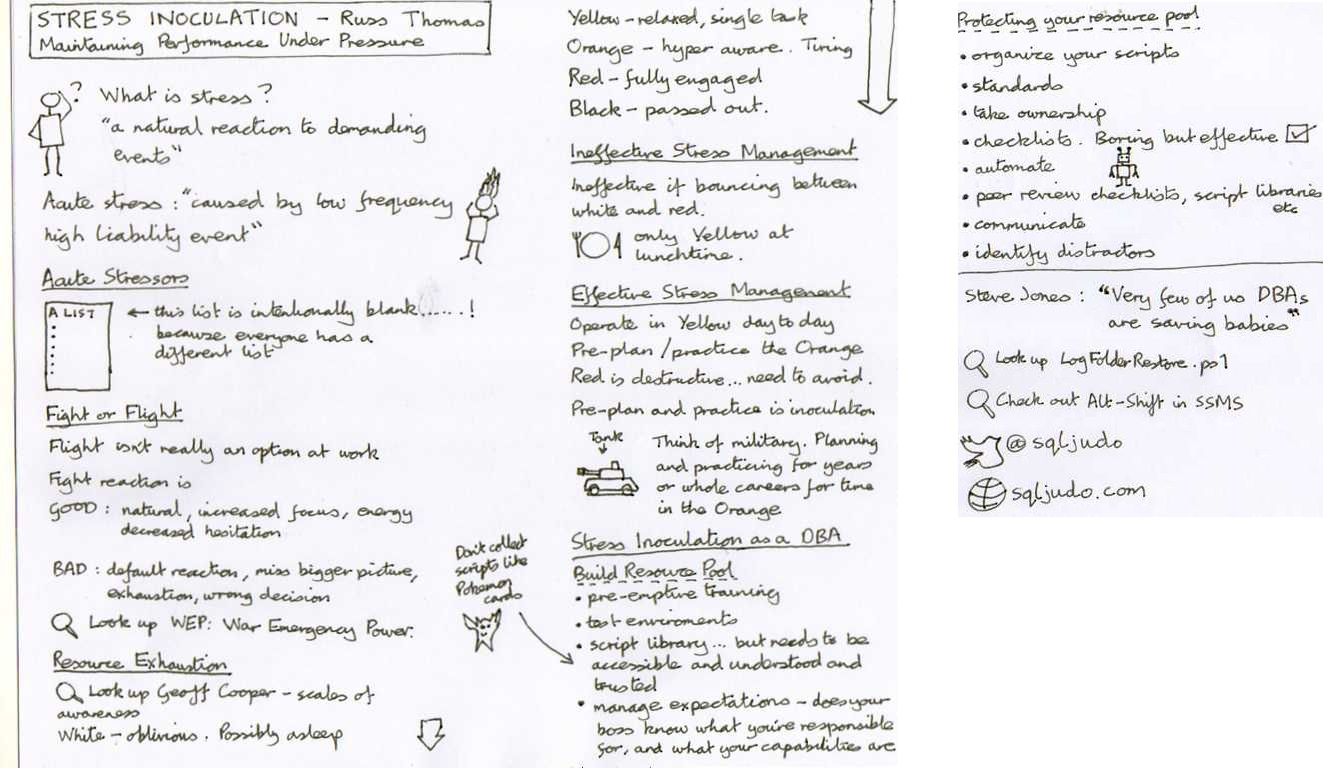 STRESS INOCULATION - Russ Thomas
Maintaining Performance Under Pressure
?
What is stress?
"a natural reaction to demanding
events"
Acute stress: "caused by low frequency
high liability event"
Acute Stressors
A LIST
← this list is intentionally blank......!
because everyone has a
different list
Fight or Flight
Flight isn't really an option at work
Fight reaction is
GOOD: natural, increased focus, energy
decreased hesitation
BAD: default reaction, miss bigger picture,
exhaustion, wrong decision
Look up WEP: War Emergency Power.
Resource Exhaustion
Look up Geoff Cooper - scales of
awareness
White - oblivious. Possibly asleep
Yellow - relaxed, single task
Orange - hyper aware. Tiring
Red - fully engaged
Black - passed out.
Ineffective Stress Management
Ineffective if bouncing between
white and red.
only Yellow at
lunchtime.
Effective Stress Management
Operate in Yellow day to day
Pre-plan/practice the Orange
Red is destructive... need to avoid.
Pre-plan and practice is inoculation
Tank
Think of military. Planning
and practicing for years
or whole careers for time
in the Orange
Stress Inoculation as a DBA
Build Resource Pool
• pre-emptive training
• test enviroments
• script library... but needs to be
accessible and understood and
trusted
• manage expectations - does your
boss know what you're responsible
for, and what your capabilities are
Don't collect
scripts like
Pokemon
cards
Protecting your resource pool
• organize your scripts
• standards
• take ownership
• checklists. Boring but effective
• automate
• peer review checklists, script libraries
etc
• communicate
• identify distractors
Steve Jones: "Very few of us DBAs
are saving babies"
Look up LogFolderRestore.ps1
Check out Alt-Shift in SSMS
@sqljudo
sqljudo.com